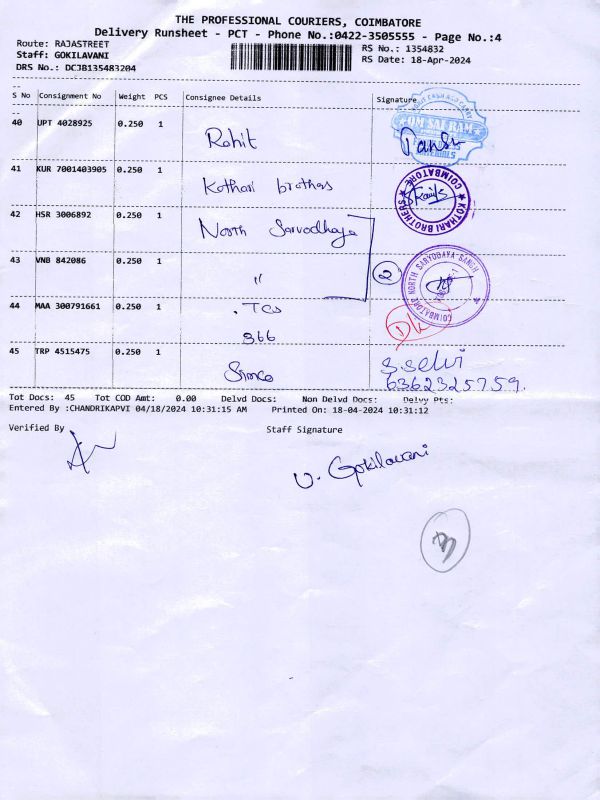 THE PROFESSIONAL COURIERS, COIMBATORE
Delivery Runsheet - PCT - Phone No.:0422-3505555 - Page No.:4
Route: RAJASTREET
Staff: GOKILAVANI
DRS No.: DCJB135483204
RS No.: 1354832
RS Date: 18-Apr-2024
S No Consignment No Weight PCS Consignee Details Signature
40 UPT 4028925 0.250 1 Rohit
OM SAI RAM
41 KUR 7001403905 0.250 1 Kothari brothers
KOTHARI BROTHERS COIMBATORE
42 HSR 3006892 0.250 1 North Sarvodhaya
43 VNB 842086 0.250 1 " 2
COIMBATORE NORTH SARVODAYA SANGH
44 MAA 300791661 0.250 1 . TCS
366
45 TRP 4515475 0.250 1
S. Selvi
6362325759.
Tot Docs: 45 Tot COD Amt: 0.00 Delvd Docs: Non Delvd Docs: Delvy Pts:
Entered By :CHANDRIKAPVI 04/18/2024 10:31:15 AM Printed On: 18-04-2024 10:31:12
Verified By Staff Signature
V. Gokilavani